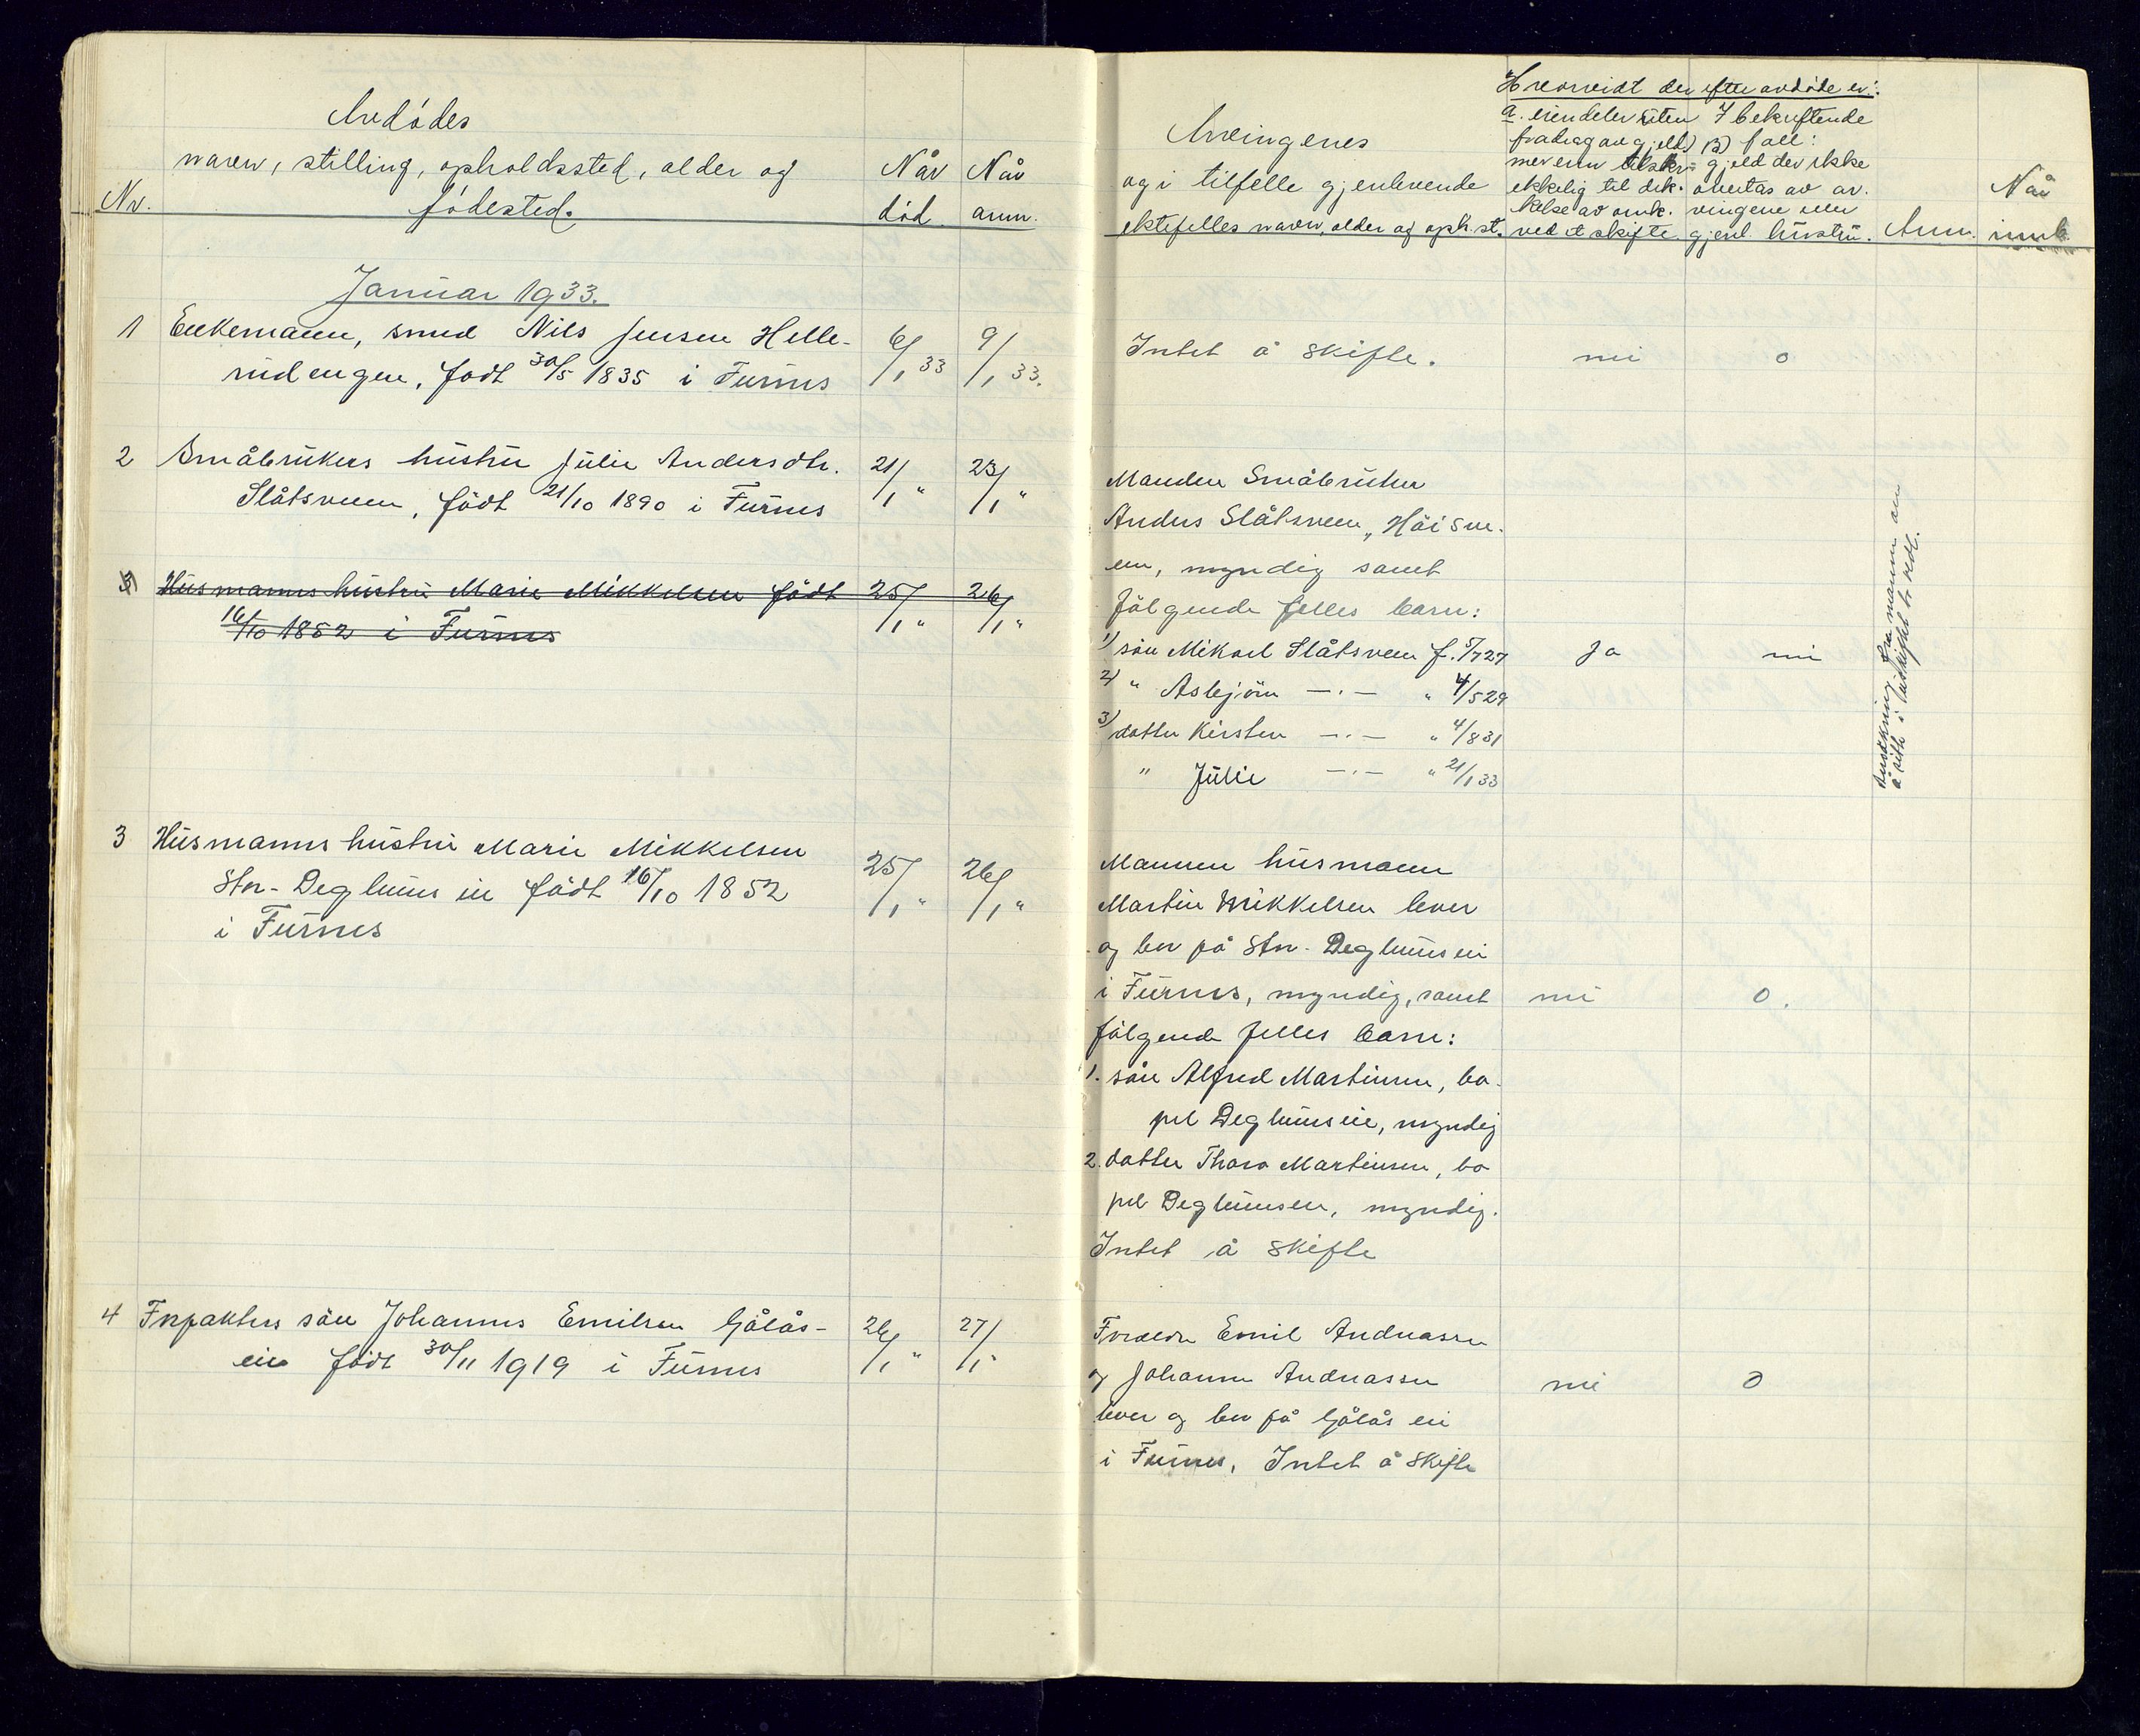 Avdødes
navn, stilling, opholdssted, alder og
fødested.
Nr.
Når
død
Når
anm.
Januar 1933.
1 Enkemann, smed Nils Jensen Helle-
rudengen, født 30/5 1835 i Furnes
6/1 33
9/1 33.
2 Småbrukers hustru Julie Andersdtr.
Slåtsveen, født 21/10 1890 i Furnes
21/1 "
23/1 "
3) Husmanns hustru Marie Mikkelsen født
16/10 1852 i Furnes
25/1 "
26/1 "
3 Husmanns hustru Marie Mikkelsen
Stor-Deglumseie født 16/10 1852
i Furnes
25/1 "
26/1 "
4 Forpakters søn Johannes Emilsen Gålås-
eie født 30/11 1919 i Furnes
26/1 "
27/1 "
Arvingenes
og i tilfelle gjenlevende
ektefelles navn, alder og oph.st.
Hvorvidt der efter avdøde er:
a. eiendeler uten
fradrag av gjeld)
mer enn tilstrek-
ekkelig til dek-
kelse av omk.
ved et skifte.
I bekreftende
b) fall:
gjeld der ikke
overtas av ar-
vingene eller
gjenl. hustru.
Anm.
Når
innb.
Intet å skifte.
nei
0
Manden Småbruker
Anders Slåtsveen, Høisve-
en, myndig samt
følgende felles barn:
1) søn Mikael Slåtsveen f. 5/7 27
2) " Asbjørn —.— " 4/5 29
3) datter Kirsten —.— " 4/8 31
" Julie —.— " 21/1 33
Ja
nei
Ansøkning fra mannen om
å sitte i uskiftet bo vedl.
Mannen husmann
Martin Mikkelsen lever
og bor på Stor-Deglumseie
i Furnes, myndig, samt
følgende felles barn:
1. søn Alfred Martinsen, bo-
pel Deglumseie, myndig
2. datter Thora Martinsen, bo
pel Deglumseie, myndig.
Intet å skifte
nei
0.
Foreldre Emil Andreassen
og Johanne Andreassen
lever og bor på Gålås eie
i Furnes, Intet å skifte
nei
0